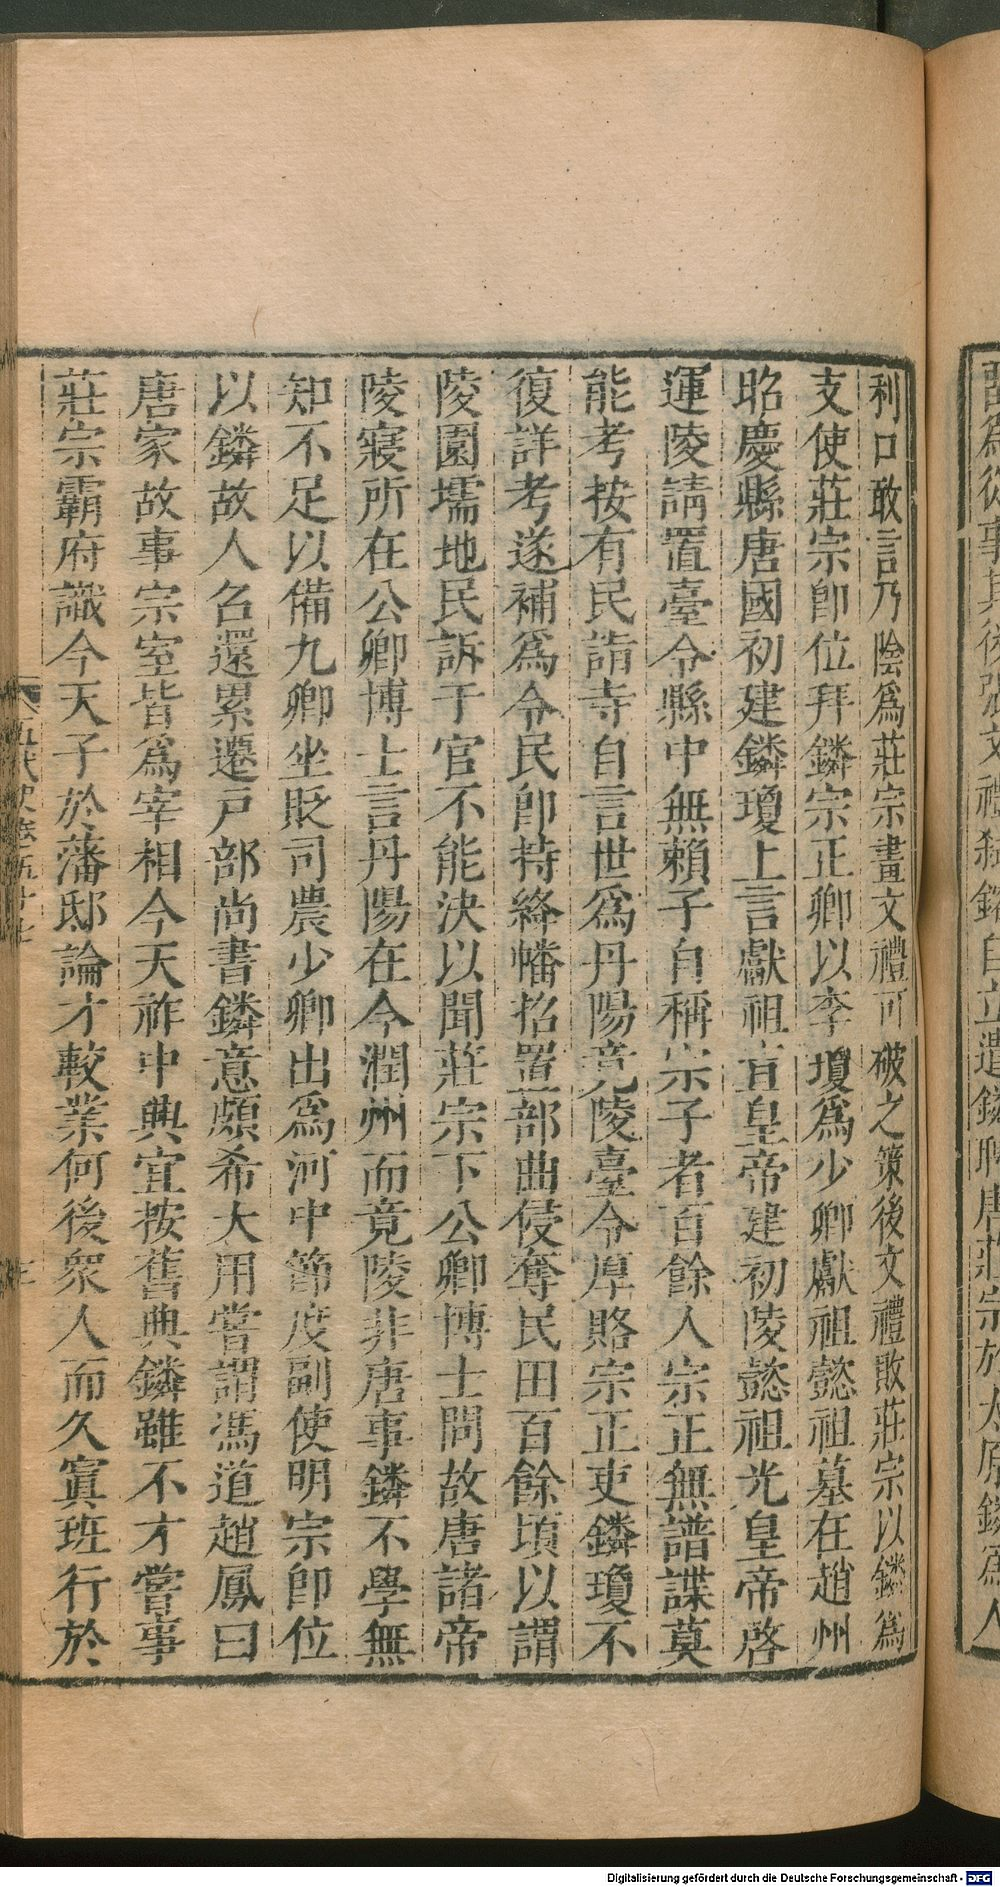 利口敢言乃陰爲莊宗畫文禮可破之策後文禮敗莊宗以鏻爲
支使莊宗卽位拜鏻宗正卿以李瓊爲少卿獻祖懿祖墓在趙州
昭慶縣唐國初建鏻瓊上言獻祖宣皇帝建初陵懿祖光皇帝啓
運陵請置臺令縣中無賴子自稱宗子者百餘人宗正無譜諜莫
能考按有民詣寺自言世爲丹陽竟陵臺令厚賂宗正吏鏻瓊不
復詳考遂補爲令民卽持絳幡招置部曲侵奪民田百餘頃以謂
陵園壖地民訴于官不能決以聞莊宗下公卿博士問故唐諸帝
陵寢所在公卿博士言丹陽在今潤州而竟陵非唐事鏻不學無
知不足以備九卿坐貶司農少卿出爲河中節度副使明宗卽位
以鏻故人召還累遷戸部尚書鏻意頗希大用嘗謂馮道趙鳳曰
唐家故事宗室皆爲宰相今天祚中興宜按舊典鏻雖不才嘗事
莊宗霸府識今天子於藩邸論才較業何後衆人而久寘班行於
五代史卷五十七
三
Digitalisierung gefördert durch die Deutsche Forschungsgemeinschaft - DFG